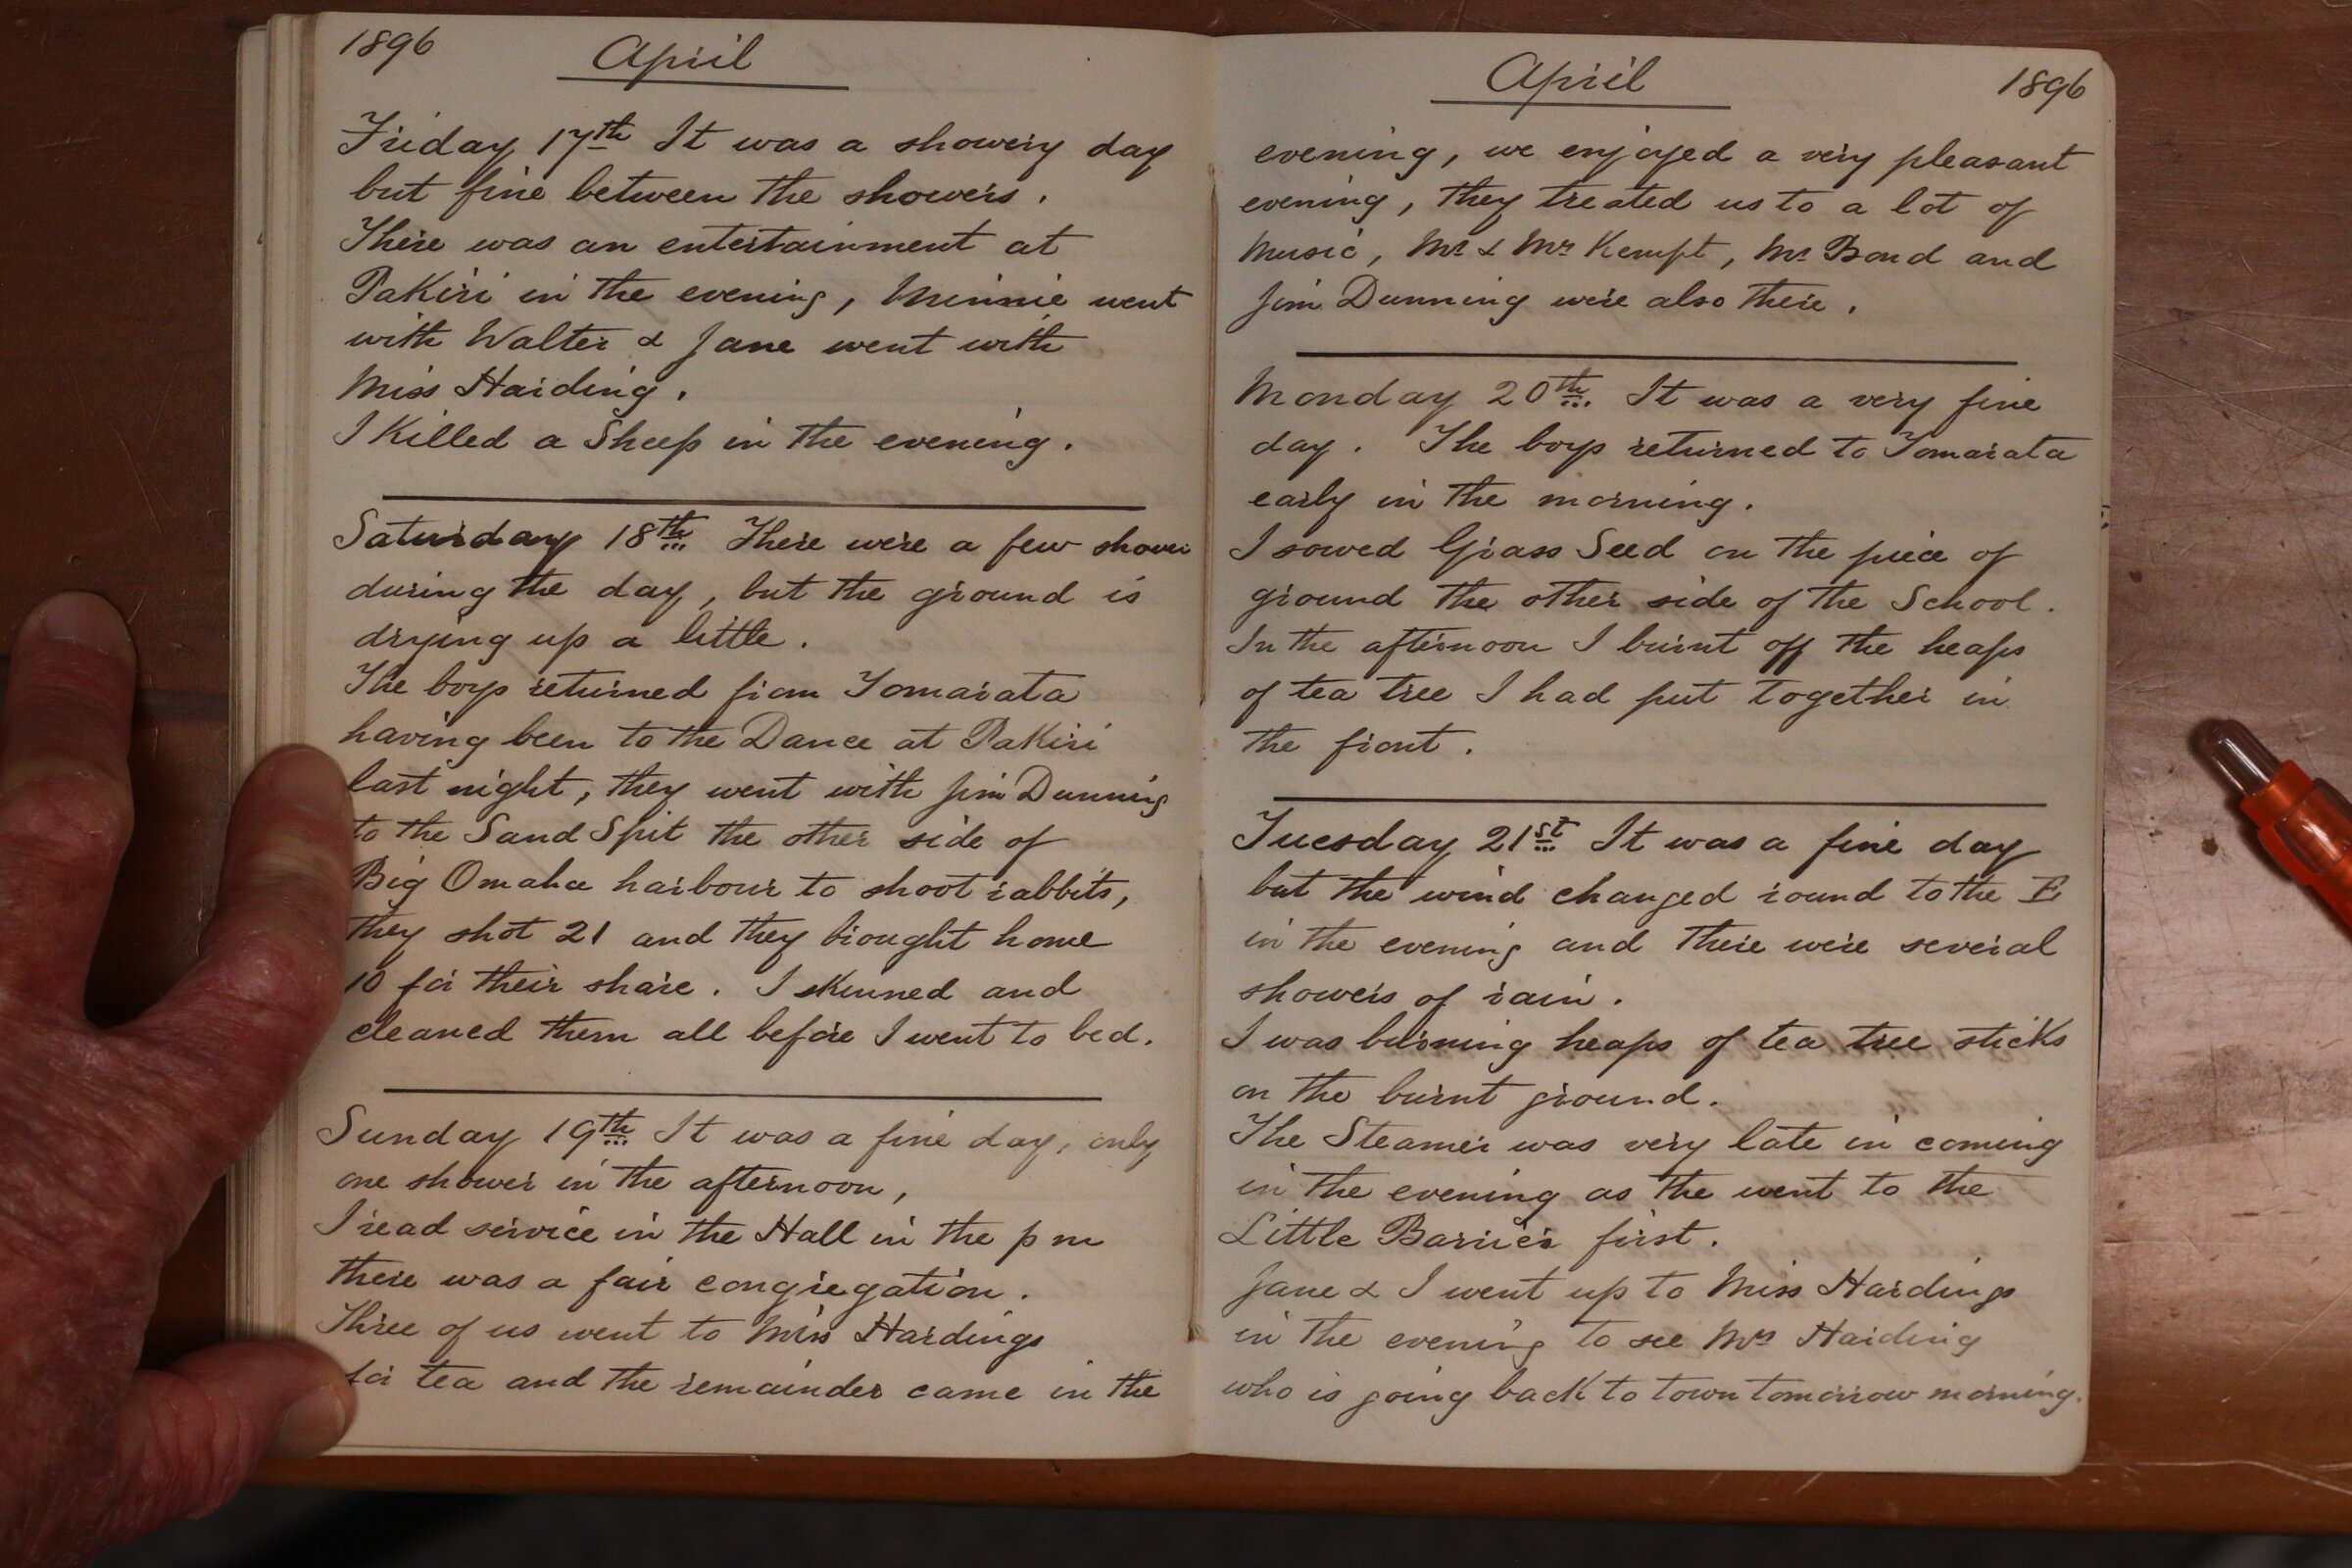 1896
April
Friday 17th It was a showery day
but fine between the showers.
There was an entertainment at
Pakiri in the evening, Minnie went
with Walter & Jane went with
Miss Harding.
I Killed a Sheep in the evening.
Saturday 18th There were a few shower
during the day, but the ground is
drying up a little.
The boys returned from Tomarata
having been to the Dance at Pakiri
last night, they went with Jim Dunning
to the Sand Spit the other side of
Big Omaha harbour to shoot rabbits,
they shot 21 and they brought home
10 for their share. I skinned and
cleaned them all before I went to bed.
Sunday 19th It was a fine day, only
one shower in the afternoon,
I read service in the Hall in the p m
there was a fair congregation.
Three of us went to Miss Hardings
for tea and the remainder came in the
April
1896
evening, we enjoyed a very pleasant
evening, they treated us to a lot of
Music, Mr & Mrs Kempt, Mr Bond and
Jim Dunning were also there.
Monday 20th. It was a very fine
day. The boys returned to Tomarata
early in the morning.
I sowed Grass Seed on the piece of
ground the other side of the School.
In the afternoon I burnt off the heaps
of tea tree I had put together in
the front.
Tuesday 21st It was a fine day
but the wind changed round to the E
in the evening and there were several
showers of rain.
I was burning heaps of tea tree sticks
on the burnt ground.
The Steamer was very late in coming
in the evening as the went to the
Little Barrier first.
Jane & I went up to Miss Hardings
in the evening to see Mrs Harding
who is going back to town tomorrow morning.